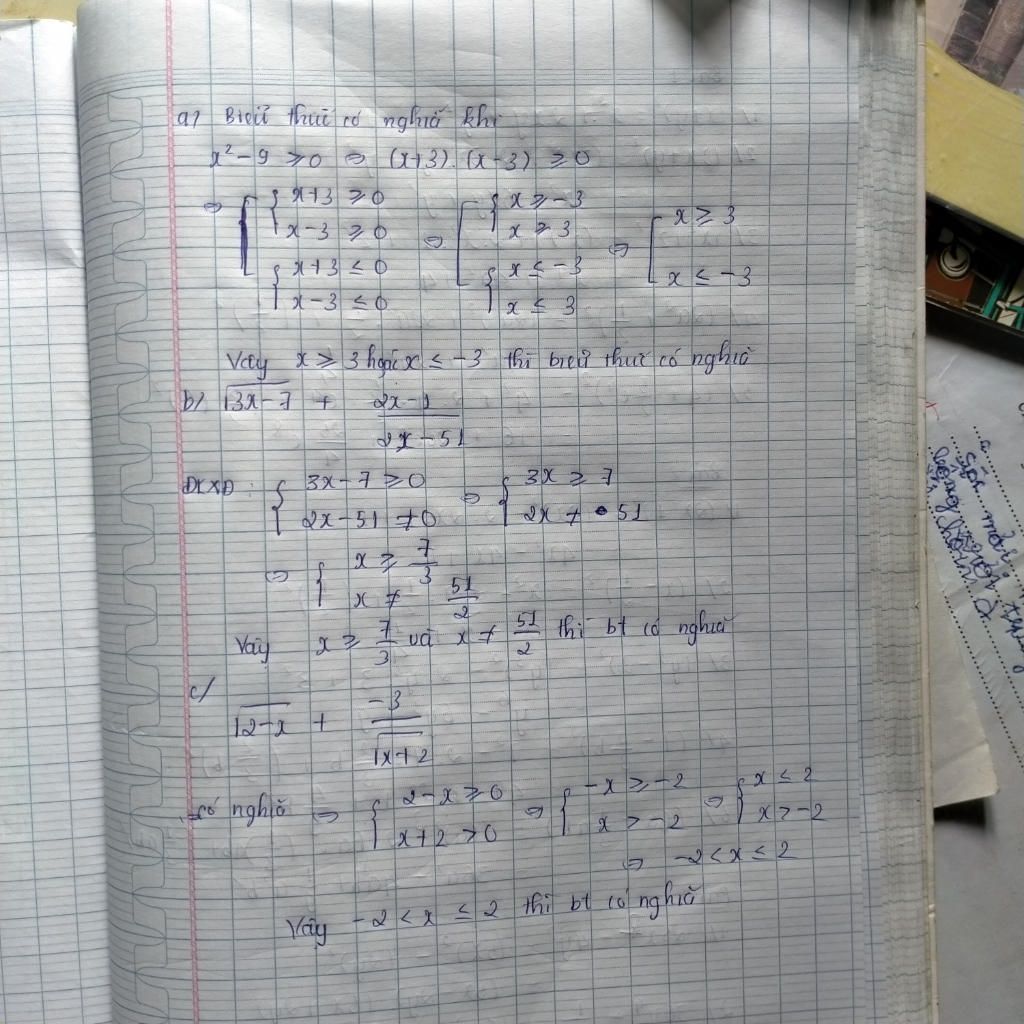 a) Biểu thức có nghĩa khi
x² - 9 ≥ 0 ⇔ (x+3).(x-3) ≥ 0
⇔ [ { x+3 ≥ 0 ; x-3 ≥ 0 ; { x+3 ≤ 0 ; x-3 ≤ 0 ⇔ [ { x ≥ -3 ; x ≥ 3 ; { x ≤ -3 ; x ≤ 3 ⇔ [ x ≥ 3 ; x ≤ -3
Vậy x ≥ 3 hoặc x ≤ -3 thì biểu thức có nghĩa
b) √(3x-7) + (2x-1)/(2x-51)
ĐKXĐ: { 3x-7 ≥ 0 ; 2x-51 ≠ 0 ⇔ { 3x ≥ 7 ; 2x ≠ 51
⇔ { x ≥ 7/3 ; x ≠ 51/2
Vậy x ≥ 7/3 và x ≠ 51/2 thì bt có nghĩa
c)
√(2-x) + -3/√(x+2)
có nghĩa ⇔ { 2-x ≥ 0 ; x+2 > 0 ⇔ { -x ≥ -2 ; x > -2 ⇔ { x ≤ 2 ; x > -2
⇔ -2 < x ≤ 2
Vậy -2 < x ≤ 2 thì bt có nghĩa